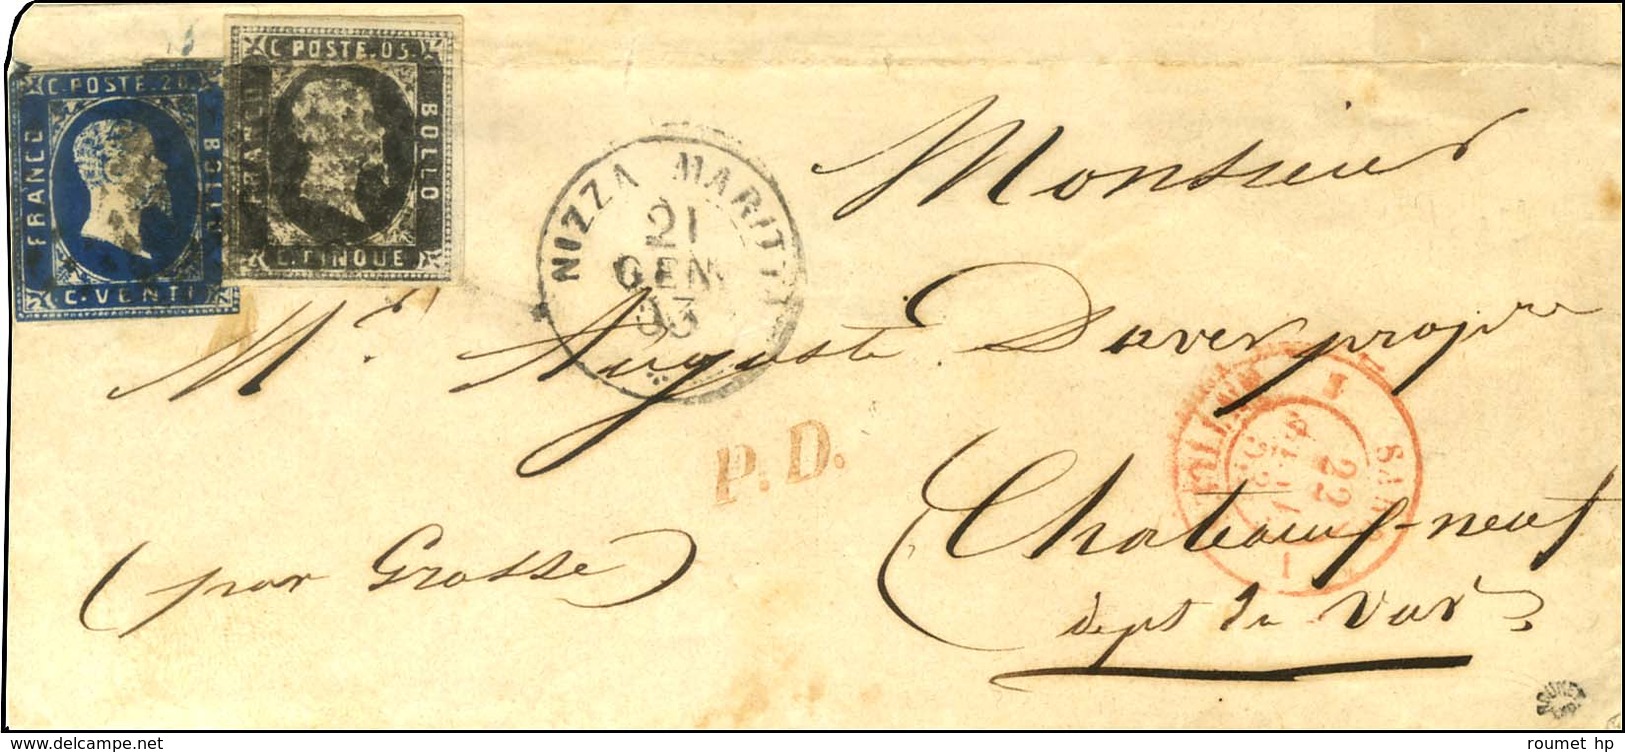 C. POSTE. 20.
FRANCO
BOLLO
C. VENTI
C. POSTE. 05.
FRANCO
BOLLO
C. CINQUE
NIZZA MARITT
21
GEN
53
Monsieur
Mr. Auguste Daver propre
P.D.
22
SARD
ANTIBES
Chateauf-neuf
(par Grasse)
dept du var
ROUMET
roumet hp